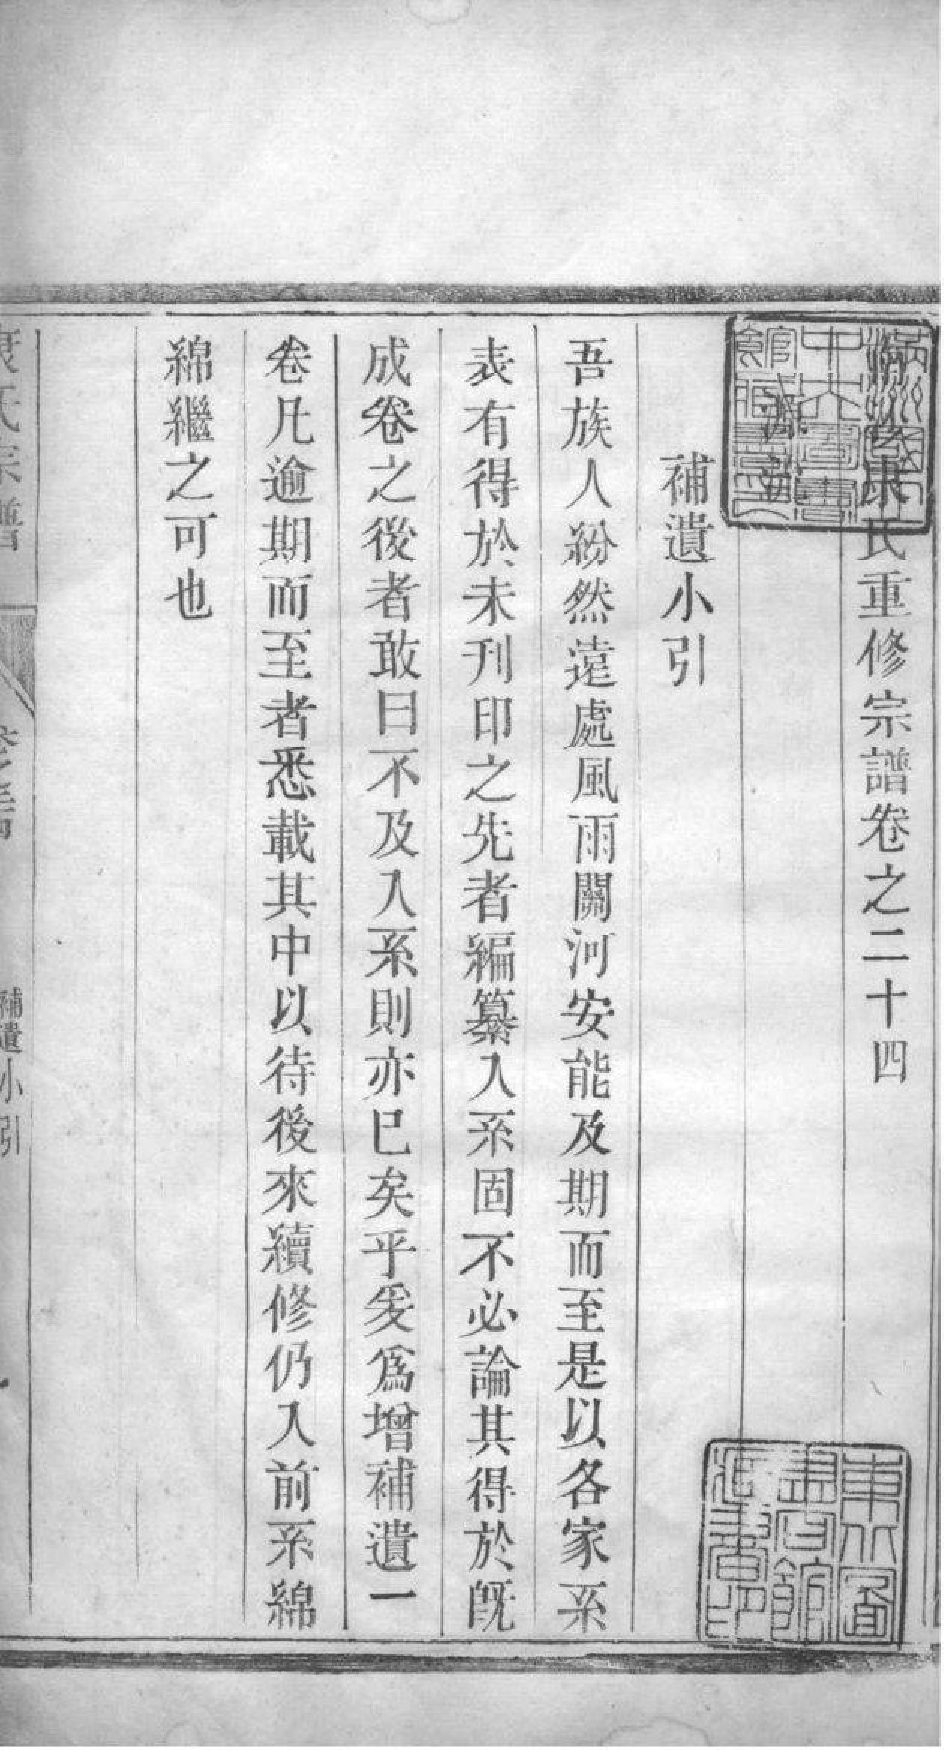 康氏重修宗譜卷之二十四
補遺小引
吾族人紛然遠處風雨關河安能及期而至是以各家系
表有得於未刊印之先者編纂入系固不必論其得於既
成卷之後者敢曰不及入系則亦已矣乎爰爲增補遺一
卷凡逾期而至者悉載其中以待後來續修仍入前系綿
綿繼之可也
康氏宗譜
卷之二十四
補遺小引
一